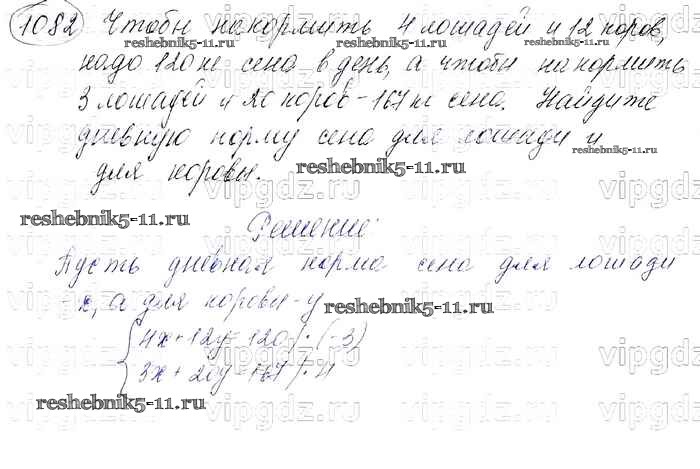 1082 Чтобы накормить 4 лошадей и 12 коров,
reshebnik5-11.ru reshebnik5-11.ru
надо 120 кг сена в день, а чтобы накормить
3 лошадей и 20 коров - 167 кг сена. Найдите
дневную норму сена для лошади и
reshebnik5-11.ru
для коровы.
reshebnik5-11.ru
reshebnik5-11.ru
Решение:
Пусть дневная норма сена для лошади
- x, а для коровы - y
reshebnik5-11.ru
4x + 12y = 120 | · (-3)
3x + 20y = 167 | · 4
reshebnik5-11.ru
vipgdz.ru